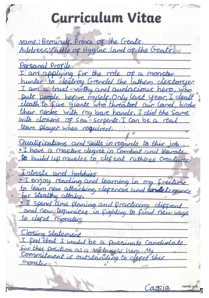 Curriculum Vitae
Name: Beowulf, Prince of the Geats
Address: Castle of Hygelac, land of the Geats.
Personal Profile
I am applying for the role of a monster
hunter to destroy Grendel the
I am a trust-worthy and audacious hero, who
puts people before myself. Only last year, I dealt
death to five giants who threatened our land, broke
their necks with my bare hands. I did the same
with dozens of sea-serpents. I can be a real
team player when required.
Qualifications and Skills in regards to this job
• I have a masters degree in Combat and Karate
to build up muscles to defeat ruthless creatures
Intrests and hobbies
• I enjoy reading and learning in my freetime
to learn new attacking defences and
for stealthy attacks.
• I spend time planning and practicing different
and new techniques in fighting to find new ways
to defeat monsters.
Closing Statement
I feel that I would be a passionate Candidate
for this position as a hero. My
Commitment is outstanding to defeat this
monster.
Cassia